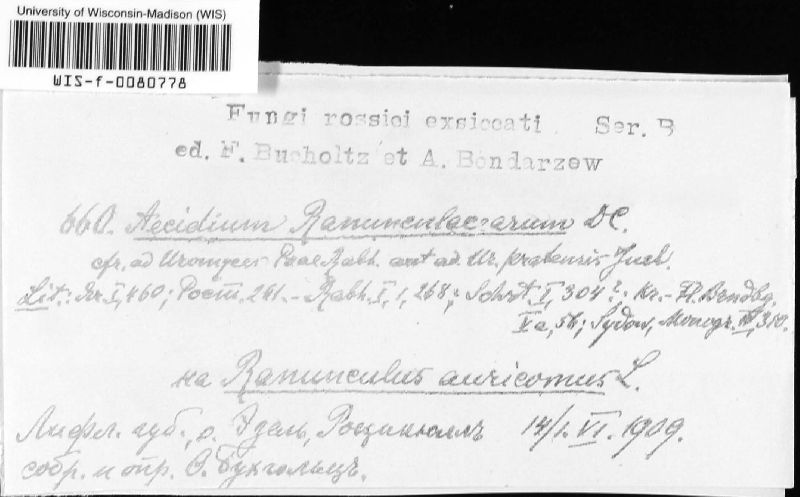 University of Wisconsin-Madison (WIS)
WIS-f-0080778
Fungi rossici exsiccati Ser. B
ed. F. Bucholtz et A. Bondarzew
660. Aecidium Ranunculacearum DC.
cfr. ad Uromyces Poae Rabh. aut ad Ur. pratensis Juel.
Lit.: I, 460; 241.- Rabh. I, 1, 268; Schröt. I, 304?; Kr.- Fl. Brndbg.
Va, 56; Sydow, Monogr. 310.
на Ranunculus auricomus L.
Лифл. губ., о. Эзель, 14/1. VI. 1909.
собр. и опр. Ѳ. Бухгольцъ.